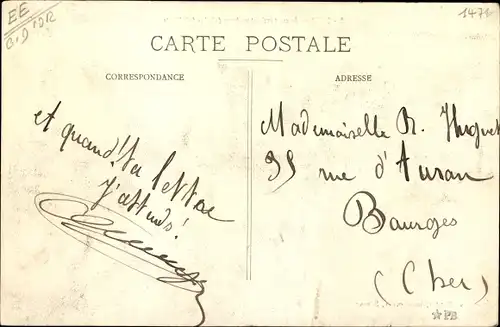 EE
1471
CARTE POSTALE
CORRESPONDANCE
ADRESSE
et quand! ta lettre
J'attends!
Mademoiselle R. Huguet
35 rue d'Auran
Bourges
(Cher)
PB